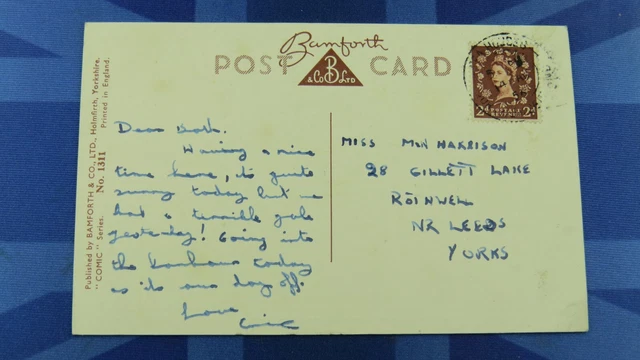 Bamforth
POST CARD
B
& Co LTD
2d POSTAGE REVENUE 2d
Published by BAMFORTH & CO., LTD., Holmfirth, Yorkshire.
"COMIC" Series. No. 1311 Printed in England.
Dear
Having a nice
time here, its quite
sunny today but we
had a terrible gale
yesterday! Going into
the today
as its our day off.
Love
MISS HARRISON
28 GILLETT LANE
ROTHWELL
NR LEEDS
YORKS